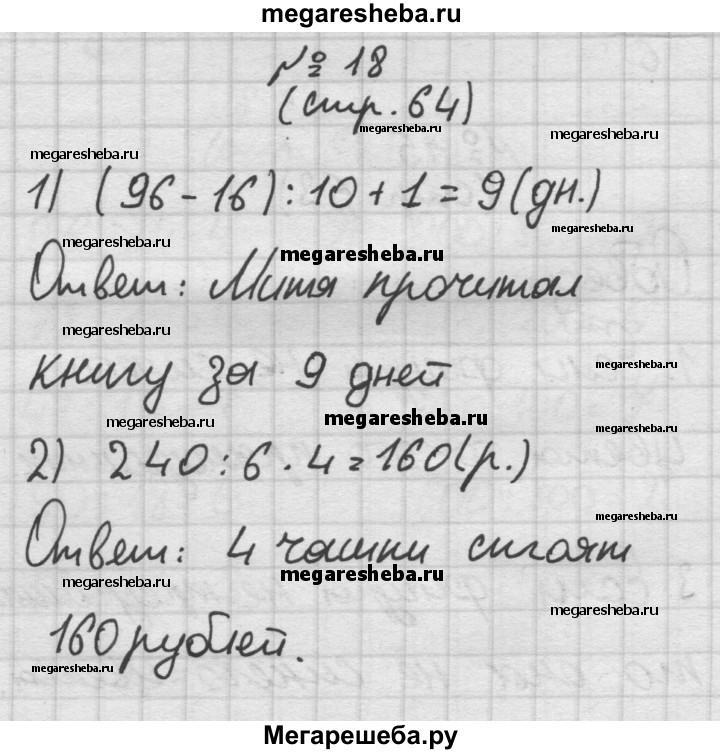 megaresheba.ru
№ 18
(стр. 64)
megaresheba.ru
megaresheba.ru
megaresheba.ru
1) (96 - 16) : 10 + 1 = 9 (дн.)
megaresheba.ru
megaresheba.ru
megaresheba.ru
Ответ: Митя прочитал
megaresheba.ru
книгу за 9 дней
megaresheba.ru
megaresheba.ru
megaresheba.ru
2) 240 : 6 · 4 = 160 (р.)
megaresheba.ru
Ответ: 4 чашки стоят
megaresheba.ru
megaresheba.ru
megaresheba.ru
160 рублей.
megaresheba.ru
megaresheba.ru
Мегарешеба.ру